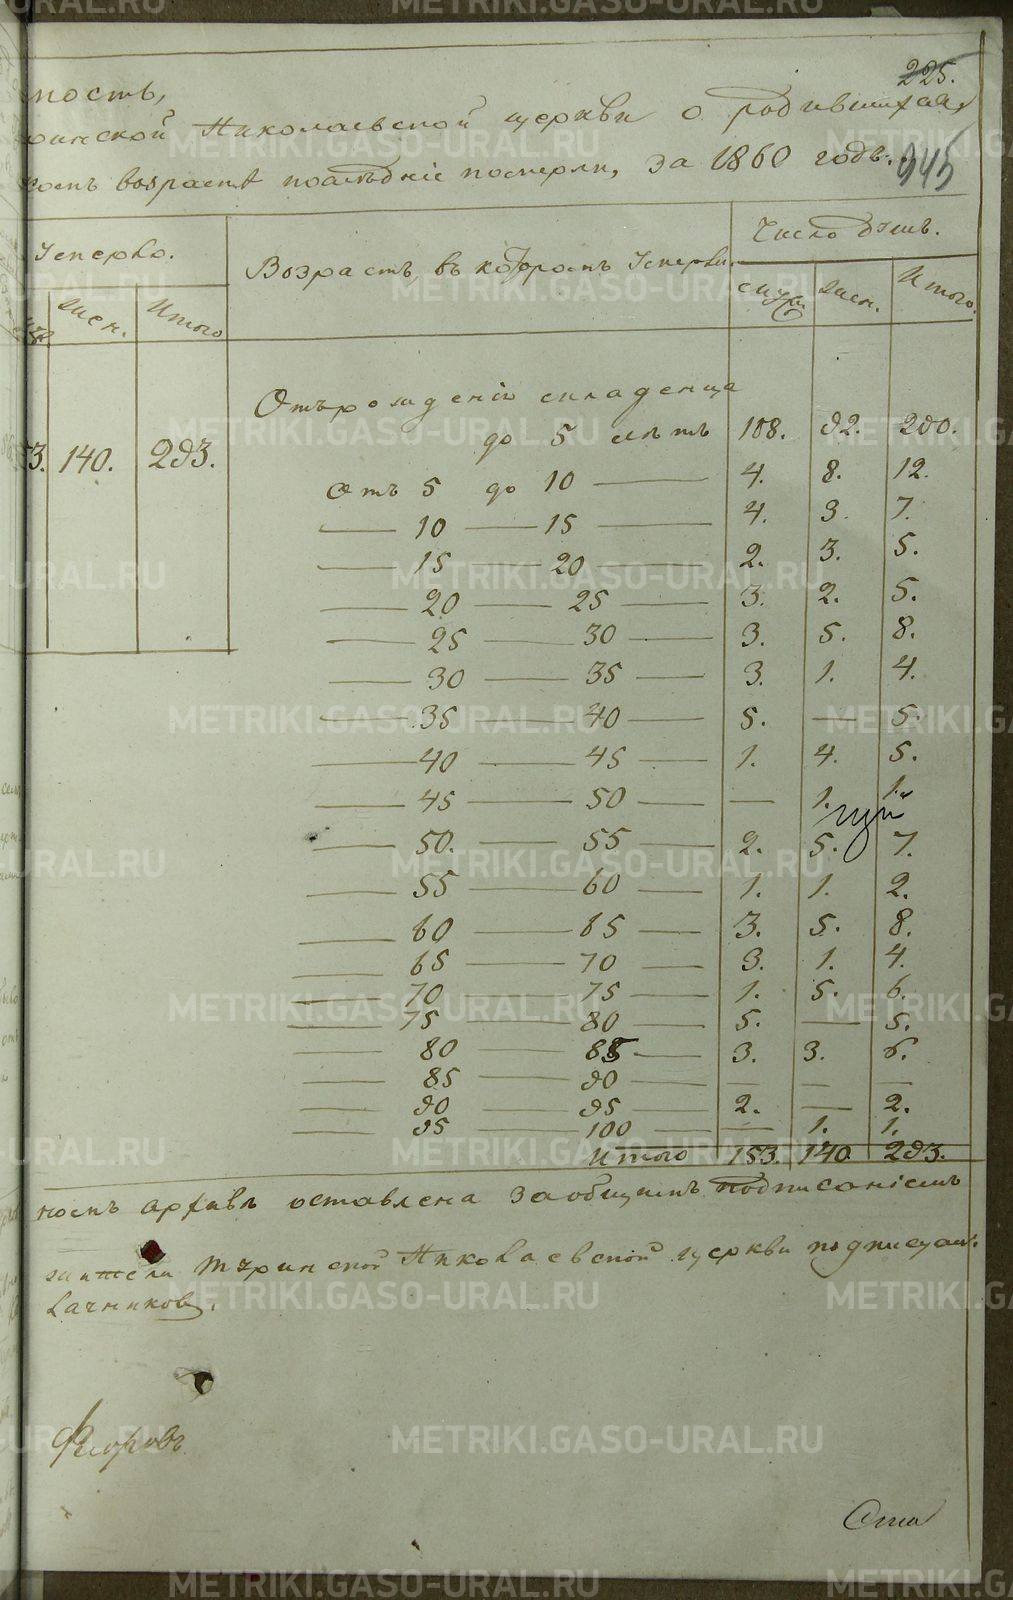 225.
мость,
ринской Николаевской церкви о родившихся,
комъ возрастѣ последніе померли, за 1860 годъ.
945
Умерло.
Возрастъ, въ которомъ Умерли.
Число душъ.
муж. жен. Итого.
жен. Итого
Отъ рожденія младенца
до 5 летъ 108. 92. 200.
3. 140. 293.
Отъ 5 до 10 — 4. 8. 12.
— 10 — 15 — 4. 3. 7.
— 15 — 20 — 2. 3. 5.
— 20 — 25 — 3. 2. 5.
— 25 — 30 — 3. 5. 8.
— 30 — 35 — 3. 1. 4.
— 35 — 40 — 5. — 5.
— 40 — 45 — 1. 4. 5.
— 45 — 50 — — 1. 1.
— 50. — 55 2. 5. 7.
— 55 — 60 — 1. 1. 2.
— 60 — 65 — 3. 5. 8.
— 65 — 70 — 3. 1. 4.
— 70 — 75 — 1. 5. 6.
— 75 — 80 — 5. — 5.
— 80 — 85 — 3. 3. 6.
— 85 — 90 — — — —
— 90 — 95 — 2. — 2.
— 95 — 100 — — 1. 1.
Итого 153. 140. 293.
номъ архивѣ оставлена за общимъ подписаніемъ
жители Туринской Николаевской церкви подписуем.
Ѳедоровъ
METRIKI.GASO-URAL.RU